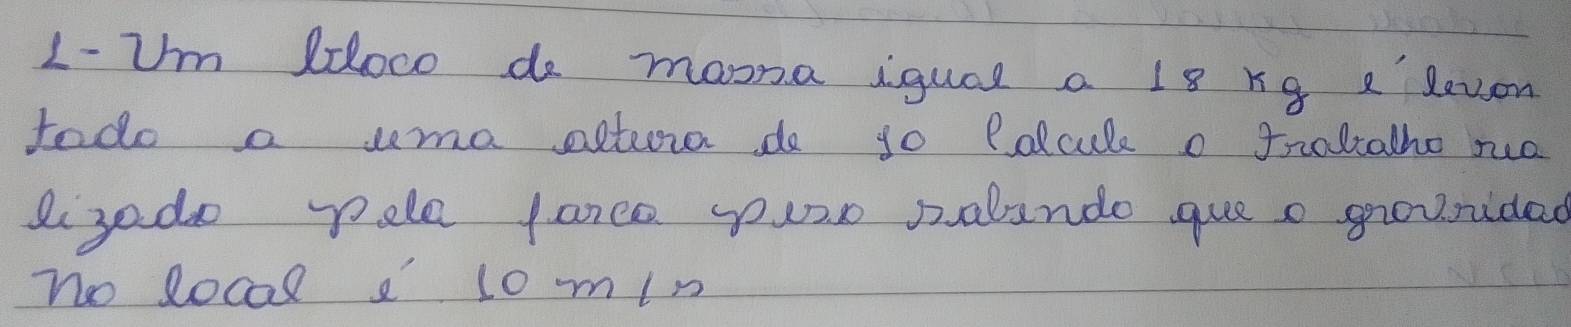 1- Um bloco de massa igual a 18 kg é levan
tado a uma altura de 10 Calcule o trabalho rea
lizado pela farca peso sabendo que a gravidad
no local é 10 m/s